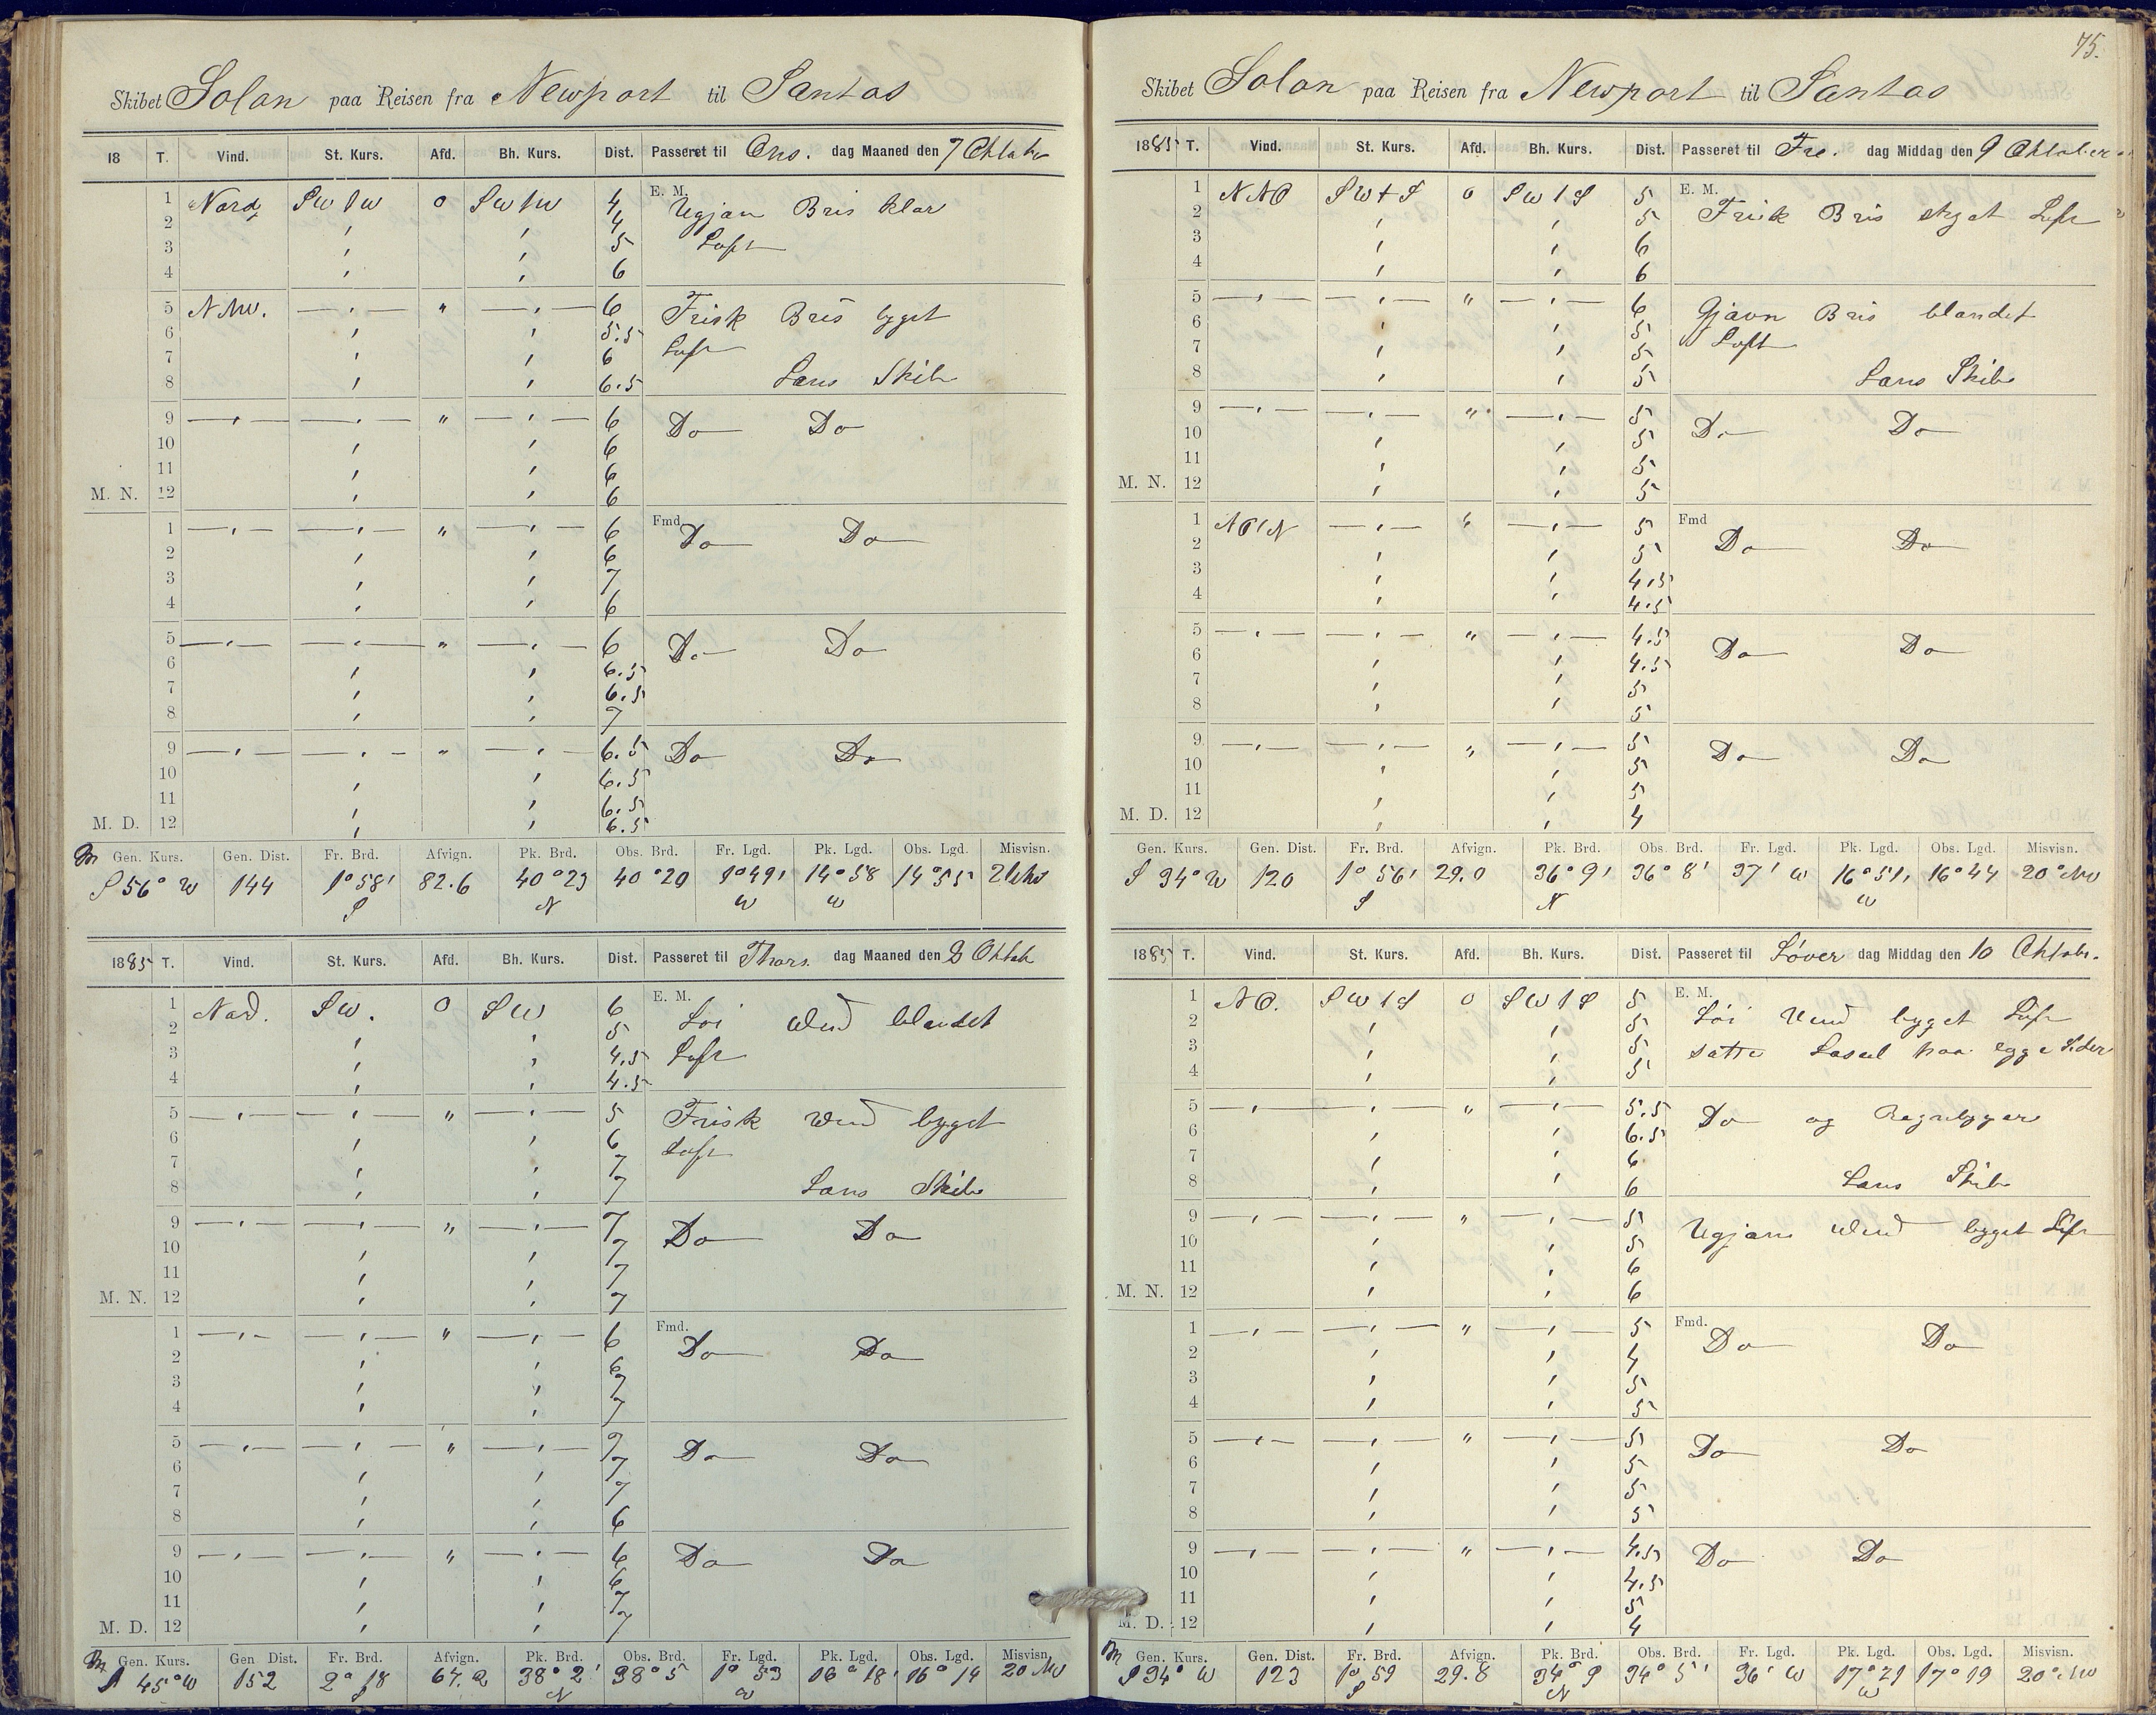 Skibet Solon paa Reisen fra Newport til Santos
18 T. Vind. St. Kurs. Afd. Bh. Kurs. Dist. Passeret til Ons. dag Maaned den 7 Oktobr
1 Nord SW/W 0 SW/W 4 E. M. Ugjæn Bris klar
2 ' ' 4
3 ' ' 5 Luft
4 ' ' 6
5 NNW. — ' — " — ' — 6 Frisk Bris bygst
6 ' ' 5.5 Luft
7 ' ' 6
8 ' ' 6.5 Lans Skib
9 — ' — — ' — " — ' — 6 Do Do
10 ' ' 6
11 ' ' 6
M. N. 12 ' ' 6
1 — ' — — ' — " — ' — 6 Fmd. Do Do
2 ' ' 6
3 ' ' 7
4 ' ' 6
5 — ' — — ' — " — ' — 6 Do Do
6 ' ' 6.5
7 ' ' 6.5
8 ' ' 7
9 — ' — — ' — " — ' — 6.5 Do Do
10 ' ' 6.5
11 ' ' 6.5
M. D. 12 ' ' 6.5
Gen. Kurs. Gen. Dist. Fr. Brd. Afvign. Pk. Brd. Obs. Brd. Fr. Lgd. Pk. Lgd. Obs. Lgd. Misvisn.
S 56° W 144 1° 58' 82.6 40° 23 40° 20 1° 49' 14° 58 14° 55
S N W W
1885 T. Vind. St. Kurs. Afd. Bh. Kurs. Dist. Passeret til Thors. dag Maaned den 8 Oktob
1 Nord. SW. 0 SW 6 E. M. Løi Vind blandet
2 ' ' 5
3 ' ' 4.5 Luft
4 ' ' 4.5
5 — ' — — ' — " — ' — 5 Frisk Vind bygst
6 ' ' 6 Luft
7 ' ' 7
8 ' ' 7 Lans Skib
9 — ' — — ' — " — ' — 7 Do Do
10 ' ' 7
11 ' ' 7
M. N. 12 ' ' 7
1 — ' — — ' — " — ' — 6 Fmd. Do Do
2 ' ' 6
3 ' ' 7
4 ' ' 7
5 — ' — — ' — " — ' — 7 Do Do
6 ' ' 7
7 ' ' 7
8 ' ' 6
9 — ' — — ' — " — ' — 6 Do Do
10 ' ' 6
11 ' ' 7
M. D. 12 ' ' 7
Gen. Kurs. Gen Dist. Fr. Brd. Afvign. Pk. Brd. Obs. Brd. Fr. Lgd. Pk. Lgd. Obs. Lgd. Misvisn.
S 45° W 152 2° 18 38° 2' 38° 5 1° 33 16° 18' 16° 14 20 NW
S N W
75.
Skibet Solon paa Reisen fra Newport til Santos
1885 T. Vind. St. Kurs. Afd. Bh. Kurs. Dist. Passeret til Fre. dag Middag den 9 Oktober
1 NNO SW/S 0 SW/S 5 E. M.
2 ' ' 5 Frisk Bris skyet Luft
3 ' ' 6
4 ' ' 6
5 — ' — — ' — " — ' — 6 Gjævn Bris blandet
6 ' ' 5
7 ' ' 5 Luft
8 ' ' 5 Lans Skib
9 — ' — — ' — " — ' — 5 Do Do
10 ' ' 5
11 ' ' 5
M. N. 12 ' ' 5
1 NO/N — ' — " — ' — 5 Fmd Do Do
2 ' ' 5
3 ' ' 4.5
4 ' ' 4.5
5 — ' — — ' — " — ' — 4.5 Do Do
6 ' ' 4.5
7 ' ' 5
8 ' ' 5
9 — ' — — ' — " — ' — 5 Do Do
10 ' ' 5
11 ' ' 5
M. D. 12 ' ' 4
Gen. Kurs. Gen. Dist. Fr. Brd. Afvign. Pk. Brd. Obs. Brd. Fr. Lgd. Pk. Lgd. Obs. Lgd. Misvisn.
S 34° W 120 1° 56' 29.0 36° 9' 36° 8' 37' W 16° 51' 16° 44 20° NW
S N W
1885 T. Vind. St. Kurs. Afd. Bh. Kurs. Dist. Passeret til Løver dag Middag den 10 Oktobr.
1 NO. SW/S 0 SW/S 5 E. M.
2 ' ' 5 Løi Vind bygst Luft
3 ' ' 5 satte Læseil paa begge Sider
4 ' ' 5
5 — ' — — ' — " — ' — 5.5 Do og Regnbyger
6 ' ' 6.5
7 ' ' 6
8 ' ' 6 Lans Skib
9 — ' — — ' — " — ' — 5 Ugjæn Vind bygst Luft
10 ' ' 5
11 ' ' 6
M. N. 12 ' ' 6
1 — ' — — ' — " — ' — 5 Fmd. Do Do
2 ' ' 4
3 ' ' 5
4 ' ' 5
5 — ' — — ' — " — ' — 5 Do Do
6 ' ' 5
7 ' ' 5
8 ' ' 5
9 — ' — — ' — " — ' — 4.5 Do Do
10 ' ' 4.5
11 ' ' 5
M. D. 12 ' ' 4
Gen. Kurs. Gen. Dist. Fr. Brd. Afvign. Pk. Brd. Obs. Brd. Fr. Lgd. Pk. Lgd. Obs. Lgd. Misvisn.
S 34° W 123 1° 59 29.8 34° 9 34° 5' 36' W 17° 21 17° 19 20° NW
S N W